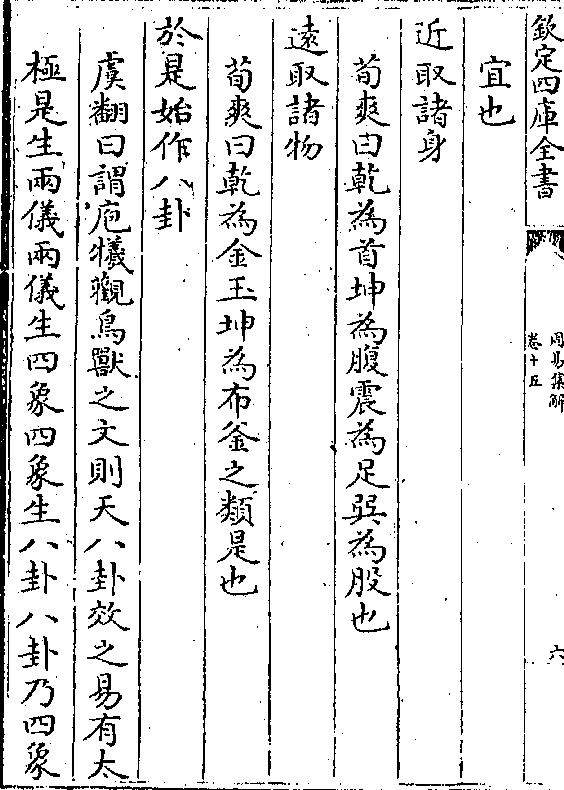 欽定四庫全書
周易集解
卷十五
六
宜也
近取諸身
荀爽曰乾為首坤為腹震為足巽為股也
遠取諸物
荀爽曰乾為金玉坤為布釜之類是也
於是始作八卦
虞翻曰謂庖犧觀鳥獸之文則天八卦效之易有太
極是生兩儀兩儀生四象四象生八卦八卦乃四象